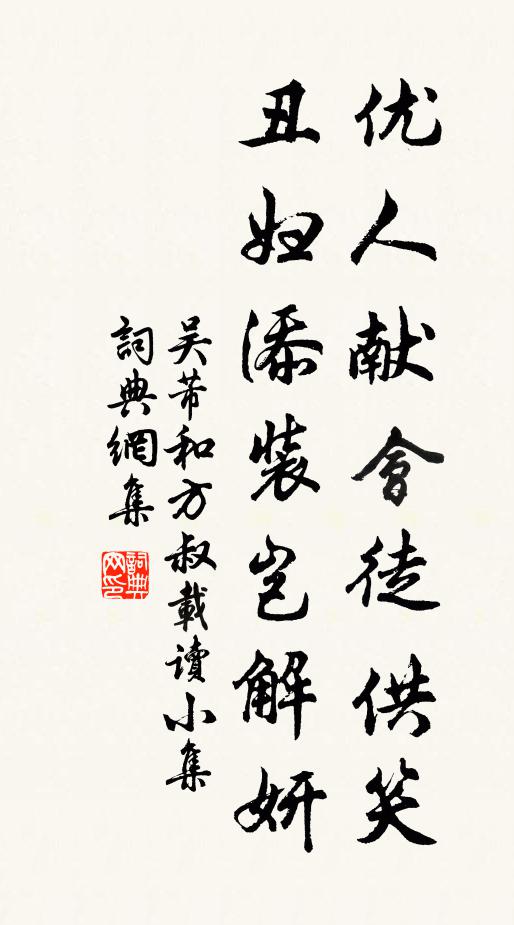 优人献會徒供笑
丑妇添裝岂解妍
吴芾和方叔載讀小集
詞典網集
詞典网印